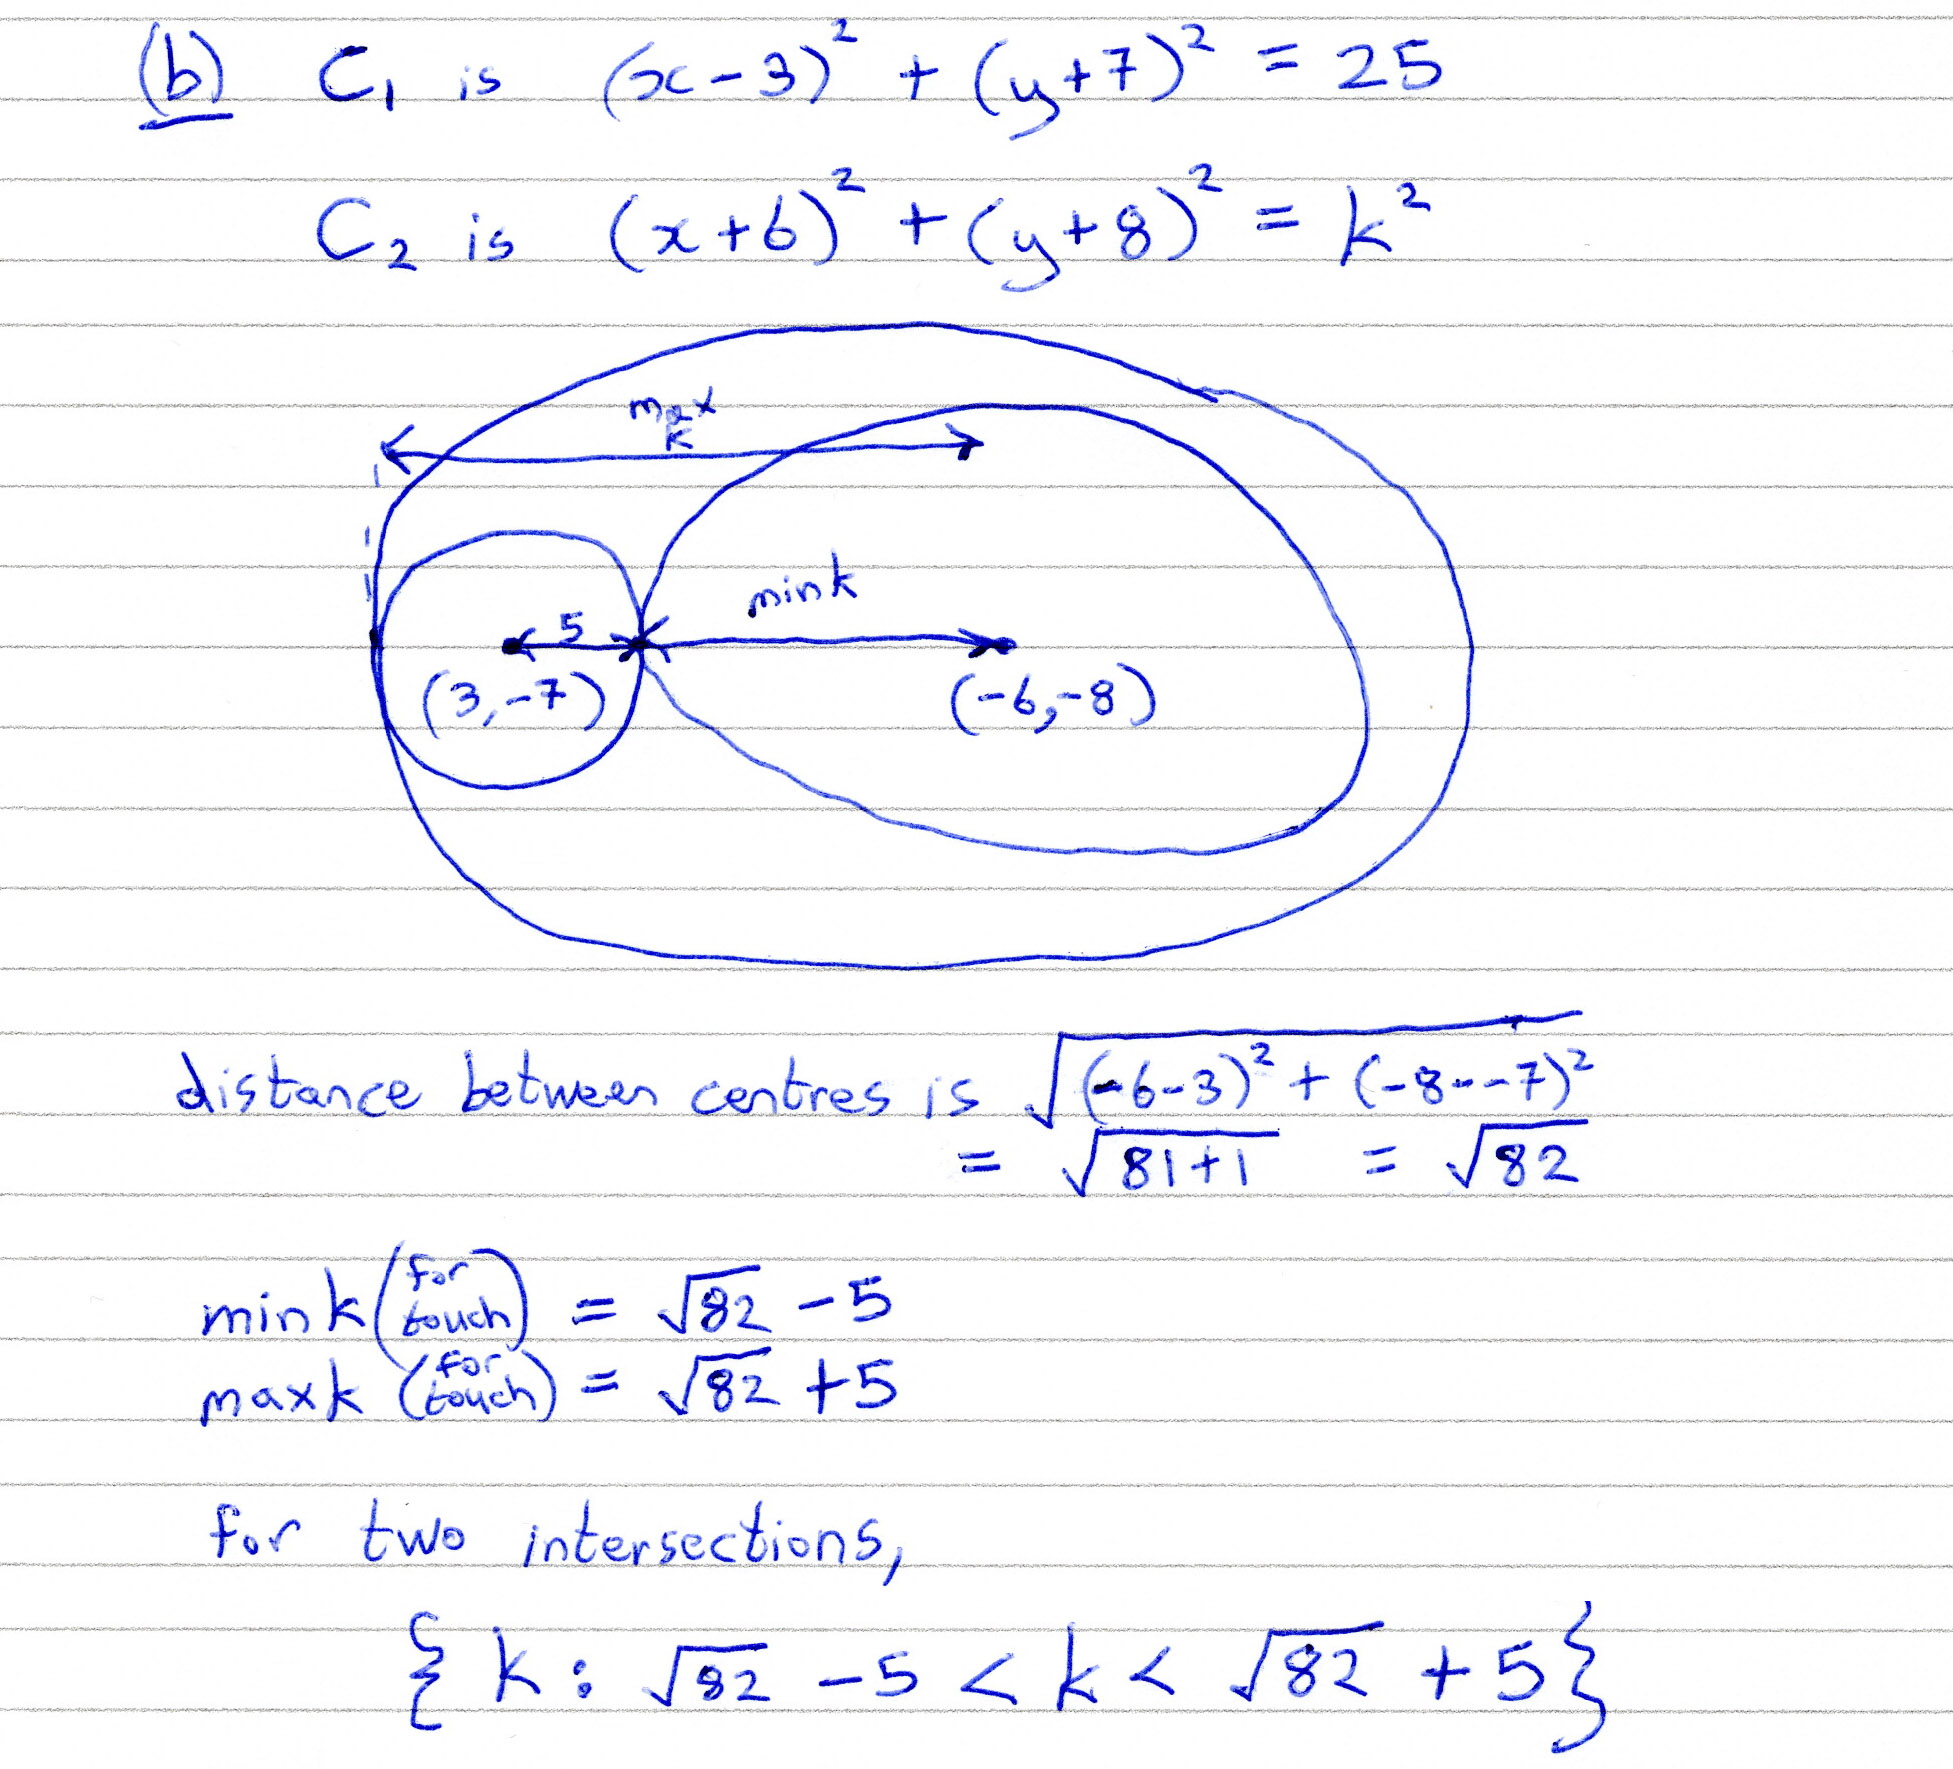 (b) C₁ is (x-3)² + (y+7)² = 25
C₂ is (x+6)² + (y+8)² = k²
max
k
min k
5
(3,-7) (-6,-8)
distance between centres is √((-6-3)² + (-8--7)²)
= √(81+1) = √82
min k (for touch) = √82 - 5
max k (for touch) = √82 + 5
for two intersections,
{k : √82 - 5 < k < √82 + 5}